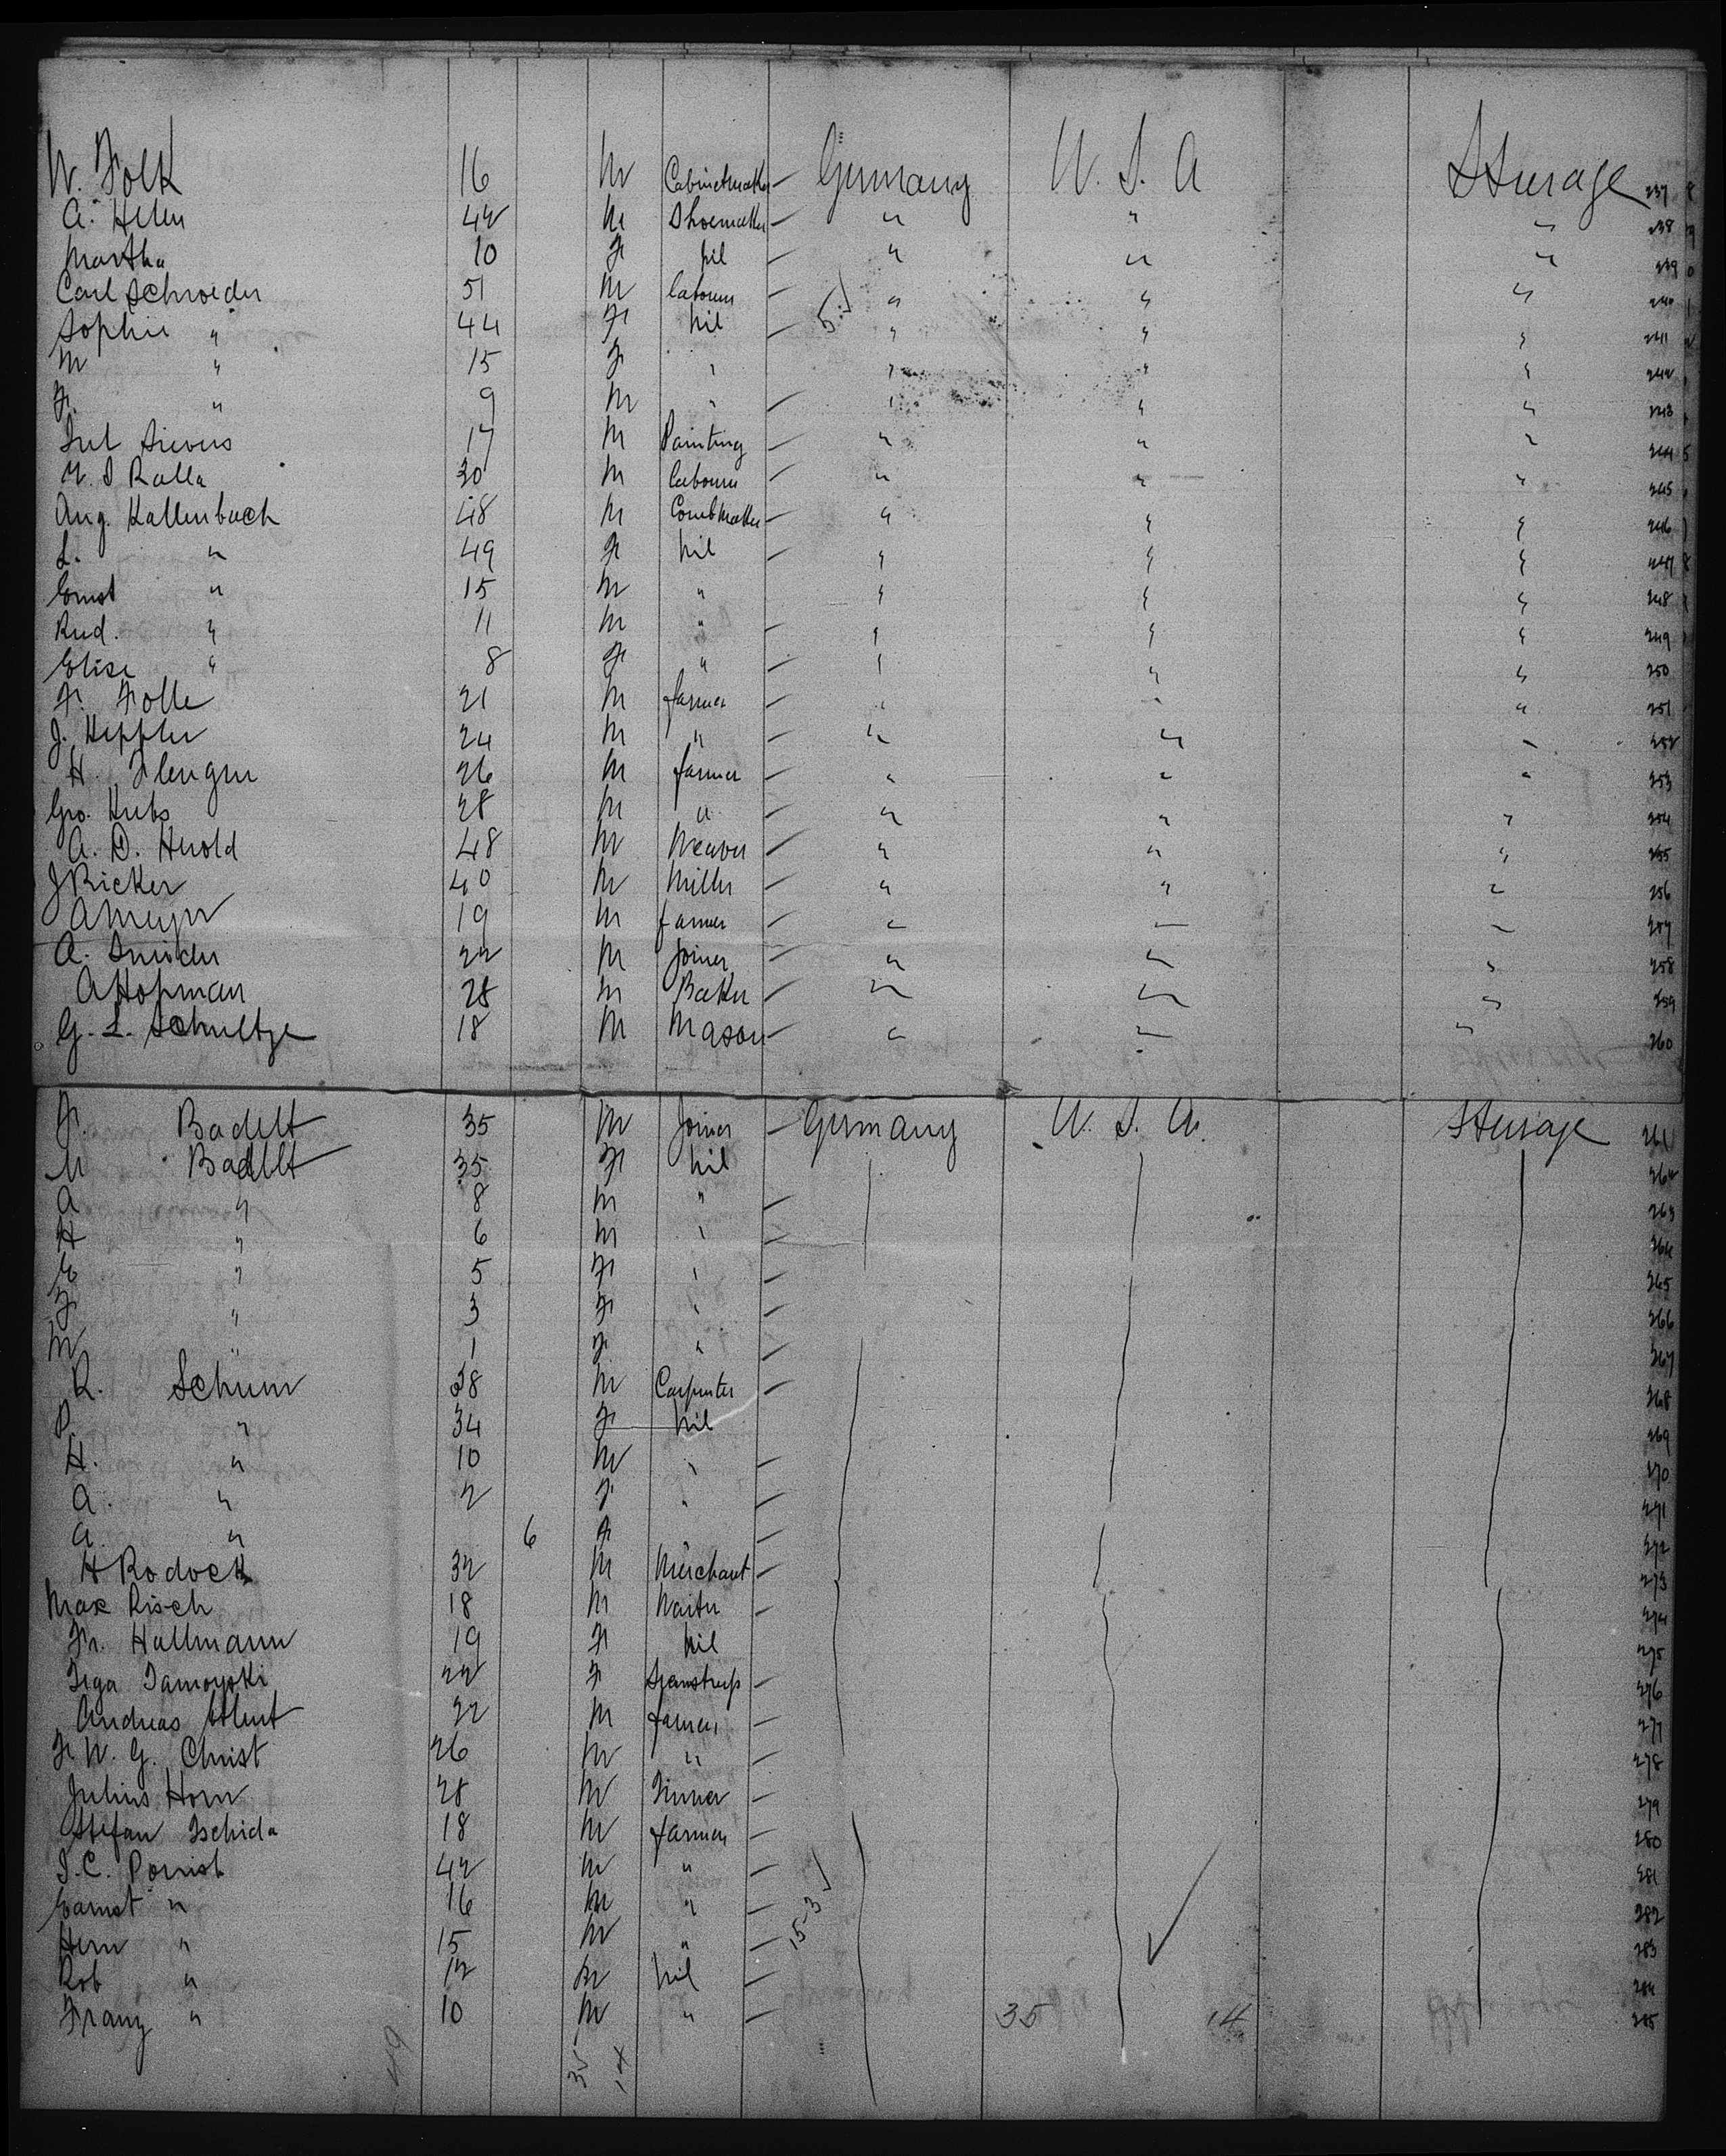 W. Folk 16 M Cabinetmaker Germany U. S. A Steerage 237
A. Helen 42 M Shoemaker " " " 238
Martha 10 F nil " " " 239
Carl Schroeder 51 M labourer " " " 240
Sophie " 44 F nil " " " 241
M " 15 F " " " " 242
F. " 9 M " " " " 243
Sievers 17 M Painting " " " 244
Ralla 30 M labourer " " " 245
Aug. Kallenbach 48 M Combmaker " " " 246
L. " 49 F nil " " " 247
Ernst " 15 M " " " " 248
Rud. " 11 M " " " " 249
Elise " 8 F " " " " 250
F. Folle 21 M farmer " " " 251
J. Heppler 24 M " " " " 252
H. 26 M farmer " " " 253
Geo. Krebs 28 M " " " " 254
A. D. Herold 48 M Weaver " " " 255
J Bicker 40 M Miller " " " 256
A Meyer 19 M farmer " " " 257
A. Sneider 22 M Joiner " " " 258
A Hopman 28 M Baker " " " 259
G. L. Schultze 18 M Mason " " " 260
F. Badelt 35 M Joiner Germany U. S. A. Steerage 261
M Badelt 35 F nil 262
A " 8 M " 263
H " 6 M " 264
E " 5 F " 265
F " 3 F " 266
M " 1 F " 267
R. Schurr 38 M Carpenter 268
P. " 34 F nil 269
H. " 10 M " 270
A. " 2 F " 271
A. " 6 F " 272
H Rodock 32 M Merchant 273
Max Risch 18 M Waiter 274
Fr. Hallmann 19 F nil 275
22 F Seamstress 276
Andreas 22 M farmer 277
F. W. G. Christ 26 M " 278
Julius Horn 28 M 279
Stefan Tschida 18 M farmer 280
42 M " 281
Earnst " 16 M " 282
Herm " 15 M " 283
Rob " 12 M nil 284
Franz " 10 M " 35 14 285
49 35 14